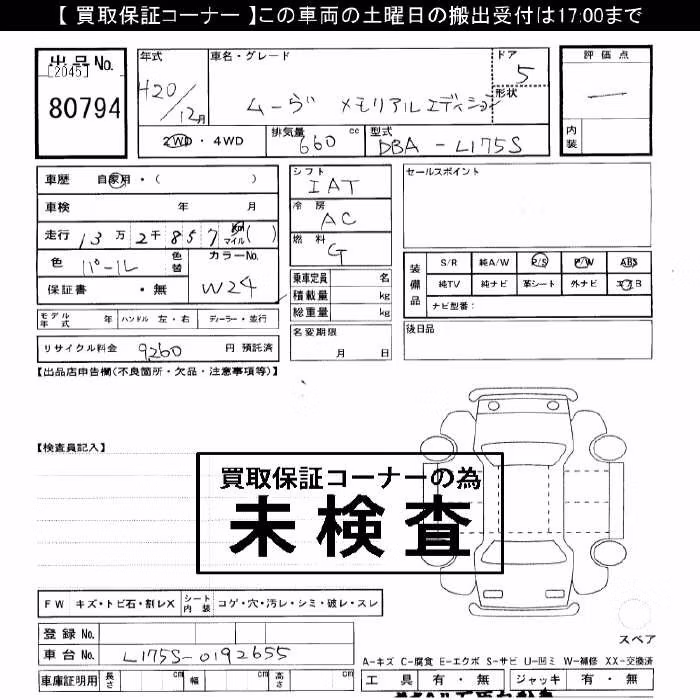 【 買取保証コーナー 】この車両の土曜日の搬出受付は17:00まで
出品No.
[2045]
80794
年式 H20/12月
車名・グレード ムーヴ メモリアルエディション
ドア 5
形状
評価点 —
内装
2WD・4WD
排気量 660 cc
型式 DBA-L175S
車歴 自家用・( )
車検 年 月
走行 13万2千857 km マイル ( )
色 パール 色替
カラーNo. W24
保証書 ・無
モデル年式 年 ハンドル 左・右 ディーラー・並行
リサイクル料金 9260 円 預託済
シフト IAT
冷房 AC
燃料 G
乗車定員 名
積載量 kg
総重量 kg
名変期限 月 日
セールスポイント
装備品
S/R 純A/W P/S P/W ABS
純TV 純ナビ 革シート 外ナビ エアB
ナビ型番:
後日品
【出品店申告欄(不良箇所・欠品・注意事項等)】
【検査員記入】
買取保証コーナーの為
未検査
FW キズ・トビ石・割レX シート内装 コゲ・穴・汚レ・シミ・破レ・スレ
登録No.
車台No. L175S-0192655
車庫証明用 長さ cm 幅 cm 高さ cm
スペア
A-キズ C-腐食 E-エクボ S-サビ U-凹ミ W-補修 XX-交換済
工具 有・無 ジャッキ 有・無